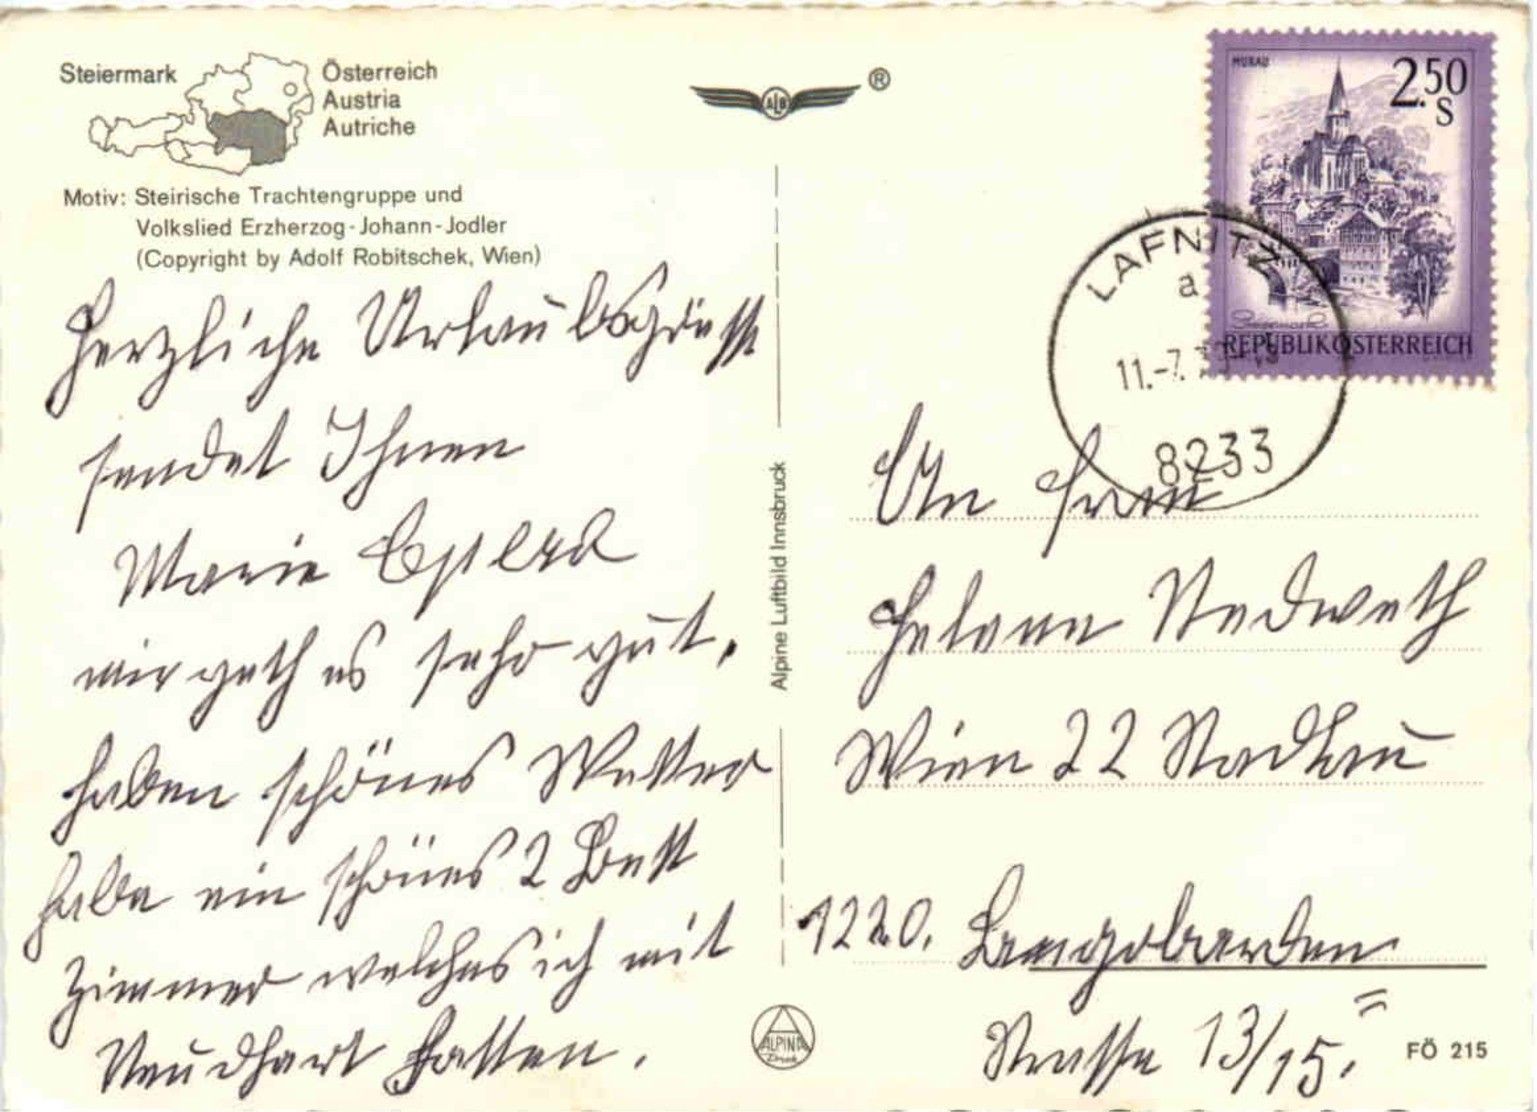 Steiermark
Österreich
Austria
Autriche
Motiv: Steirische Trachtengruppe und
Volkslied Erzherzog-Johann-Jodler
(Copyright by Adolf Robitschek, Wien)
Herzliche Urlaubsgrüsse
sendet Ihnen
Marie
mir geth es sehr gut,
haben schönes Wetter
habe ein schönes 2 Bett
Zimmer welches ich mit
Alpine Luftbild Innsbruck
ALB ®
ALPINA
Druck
MURAU
2.50
S
REPUBLIK ÖSTERREICH
LAFNITZ
a
11.-7.
8233
An Frau
Helene Nedweth
Wien 22 Stadlau
1220. Langobarden
Strasse 13/15.
FÖ 215